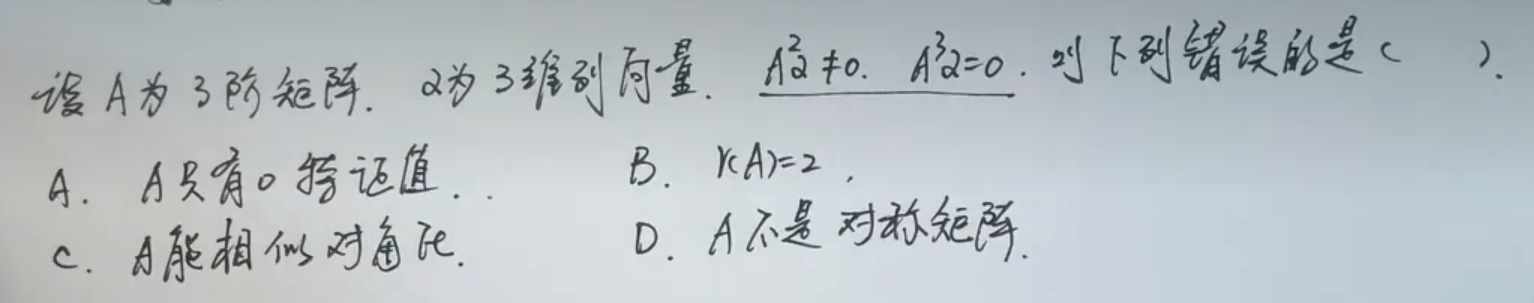 设A为3阶矩阵. α为3维列向量. A²α≠0. A³α=0. 则下列错误的是( ).
A. A只有0特征值. B. r(A)=2.
C. A能相似对角化. D. A不是对称矩阵.